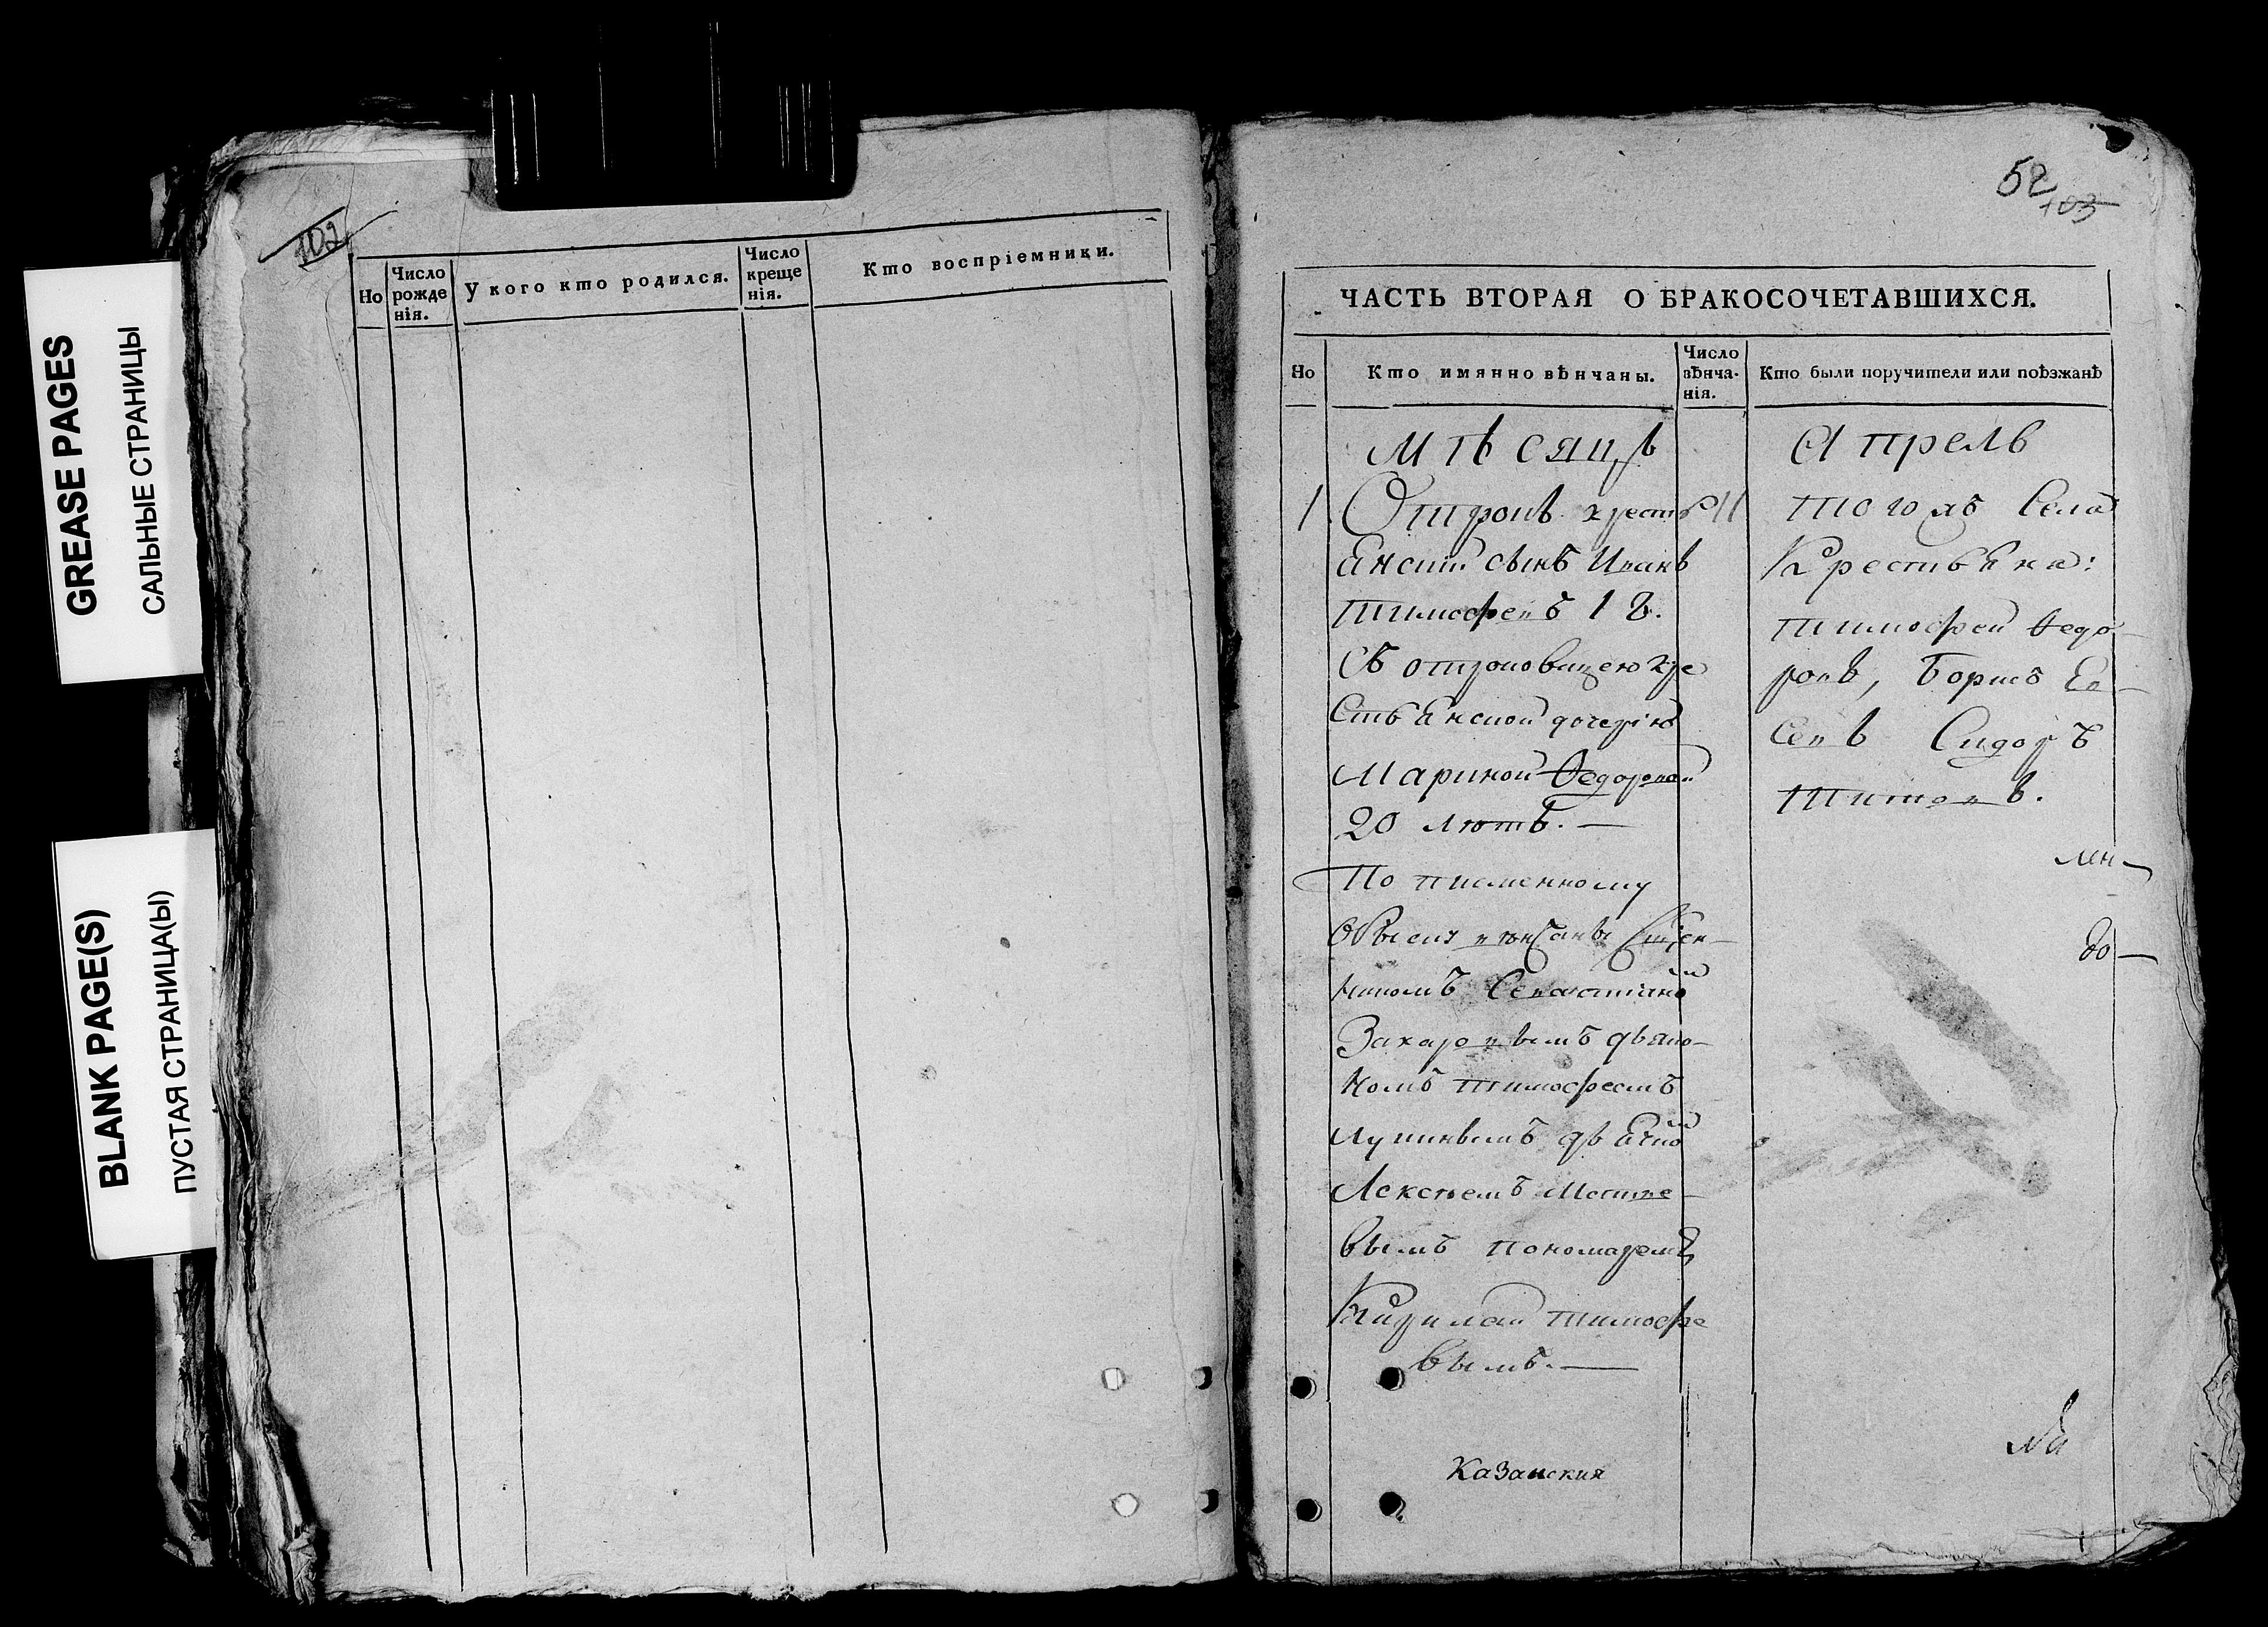 GREASE PAGES
САЛЬНЫЕ СТРАНИЦЫ
BLANK PAGE(S)
ПУСТАЯ СТРАНИЦА(Ы)
102
Но
Число рожде нія.
У кого кто родился.
Число креще нія.
Кто воспріемники.
52
103
ЧАСТЬ ВТОРАЯ О БРАКОСОЧЕТАВШИХСЯ.
Но
Кто имянно вѣнчаны.
Число вѣнча- нія.
Кто были поручители или поѣзжанѣ
Мѣсяцъ
1 Отрокъ крестья 11
енский сынъ Иванъ
Тимофеевъ 18.
Съ отроковицею кре
стьенской дочерію
Мариной Ѳедоровой
20 лютъ. —
По писменному
обыску
никомъ Севастіано
Захаровымъ дьяко-
номъ Тимофеемъ
Лукинымъ
Лексѣемъ Матве-
вымъ пономаремъ
Кирилой Тимофе
вымъ. —
Апрель
того жъ села
Крестьяна:
Тимофей Ѳедо-
ровъ, Борисъ Ев-
севъ Сидоръ
Титовъ.
мн-
до-
Казанския